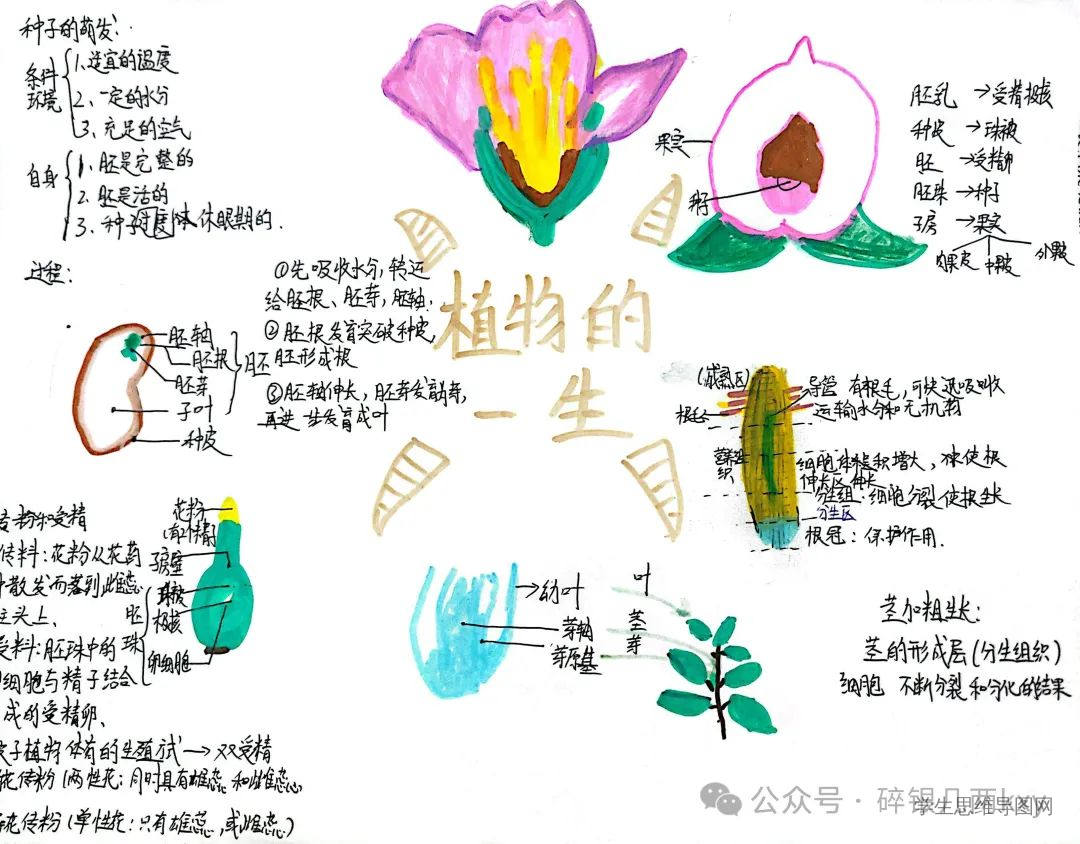 种子的萌发:
条件
环境
1.适宜的温度
2、一定的水分
3、充足的空气
自身
1. 胚是完整的
2. 胚是活的
3、种子 休眠期的.
过程:
①先吸收水分,转运
给胚根、胚芽,胚轴.
②胚根发育突破种皮,
胚形成根
③胚轴伸长,胚芽发育
再进一 发育成叶
胚轴
胚根
胚芽
子叶
种皮
胚
植物的
一生
果实
籽
胚乳→受精极核
种皮→珠被
胚→受精卵
胚珠→种子
子房→果实
果皮
(成熟区)
根毛
导管 有根毛,可快速吸收
运输水分和无机物
细胞体积增大,使根
伸长区伸长
分生组:细胞分裂使根生长
分生区
根冠:保护作用.
粉和受精
花粉从花药
散发而落到雌蕊
柱头上、
胚珠中的
细胞与精子结合
成的受精卵、
子植物体有的生殖 →双受精
花传粉(两性花:同时具有雄蕊和雌蕊)
花传粉(单性花:只有雄蕊,或雌蕊)
花粉
子房壁
珠被
极核
卵细胞
胚
珠
幼叶
芽轴
芽原基
叶
茎
芽
茎加粗生长:
茎的形成层(分生组织)
细胞 不断分裂和分化的结果
公众号·碎银几两kyy
学生思维导图网